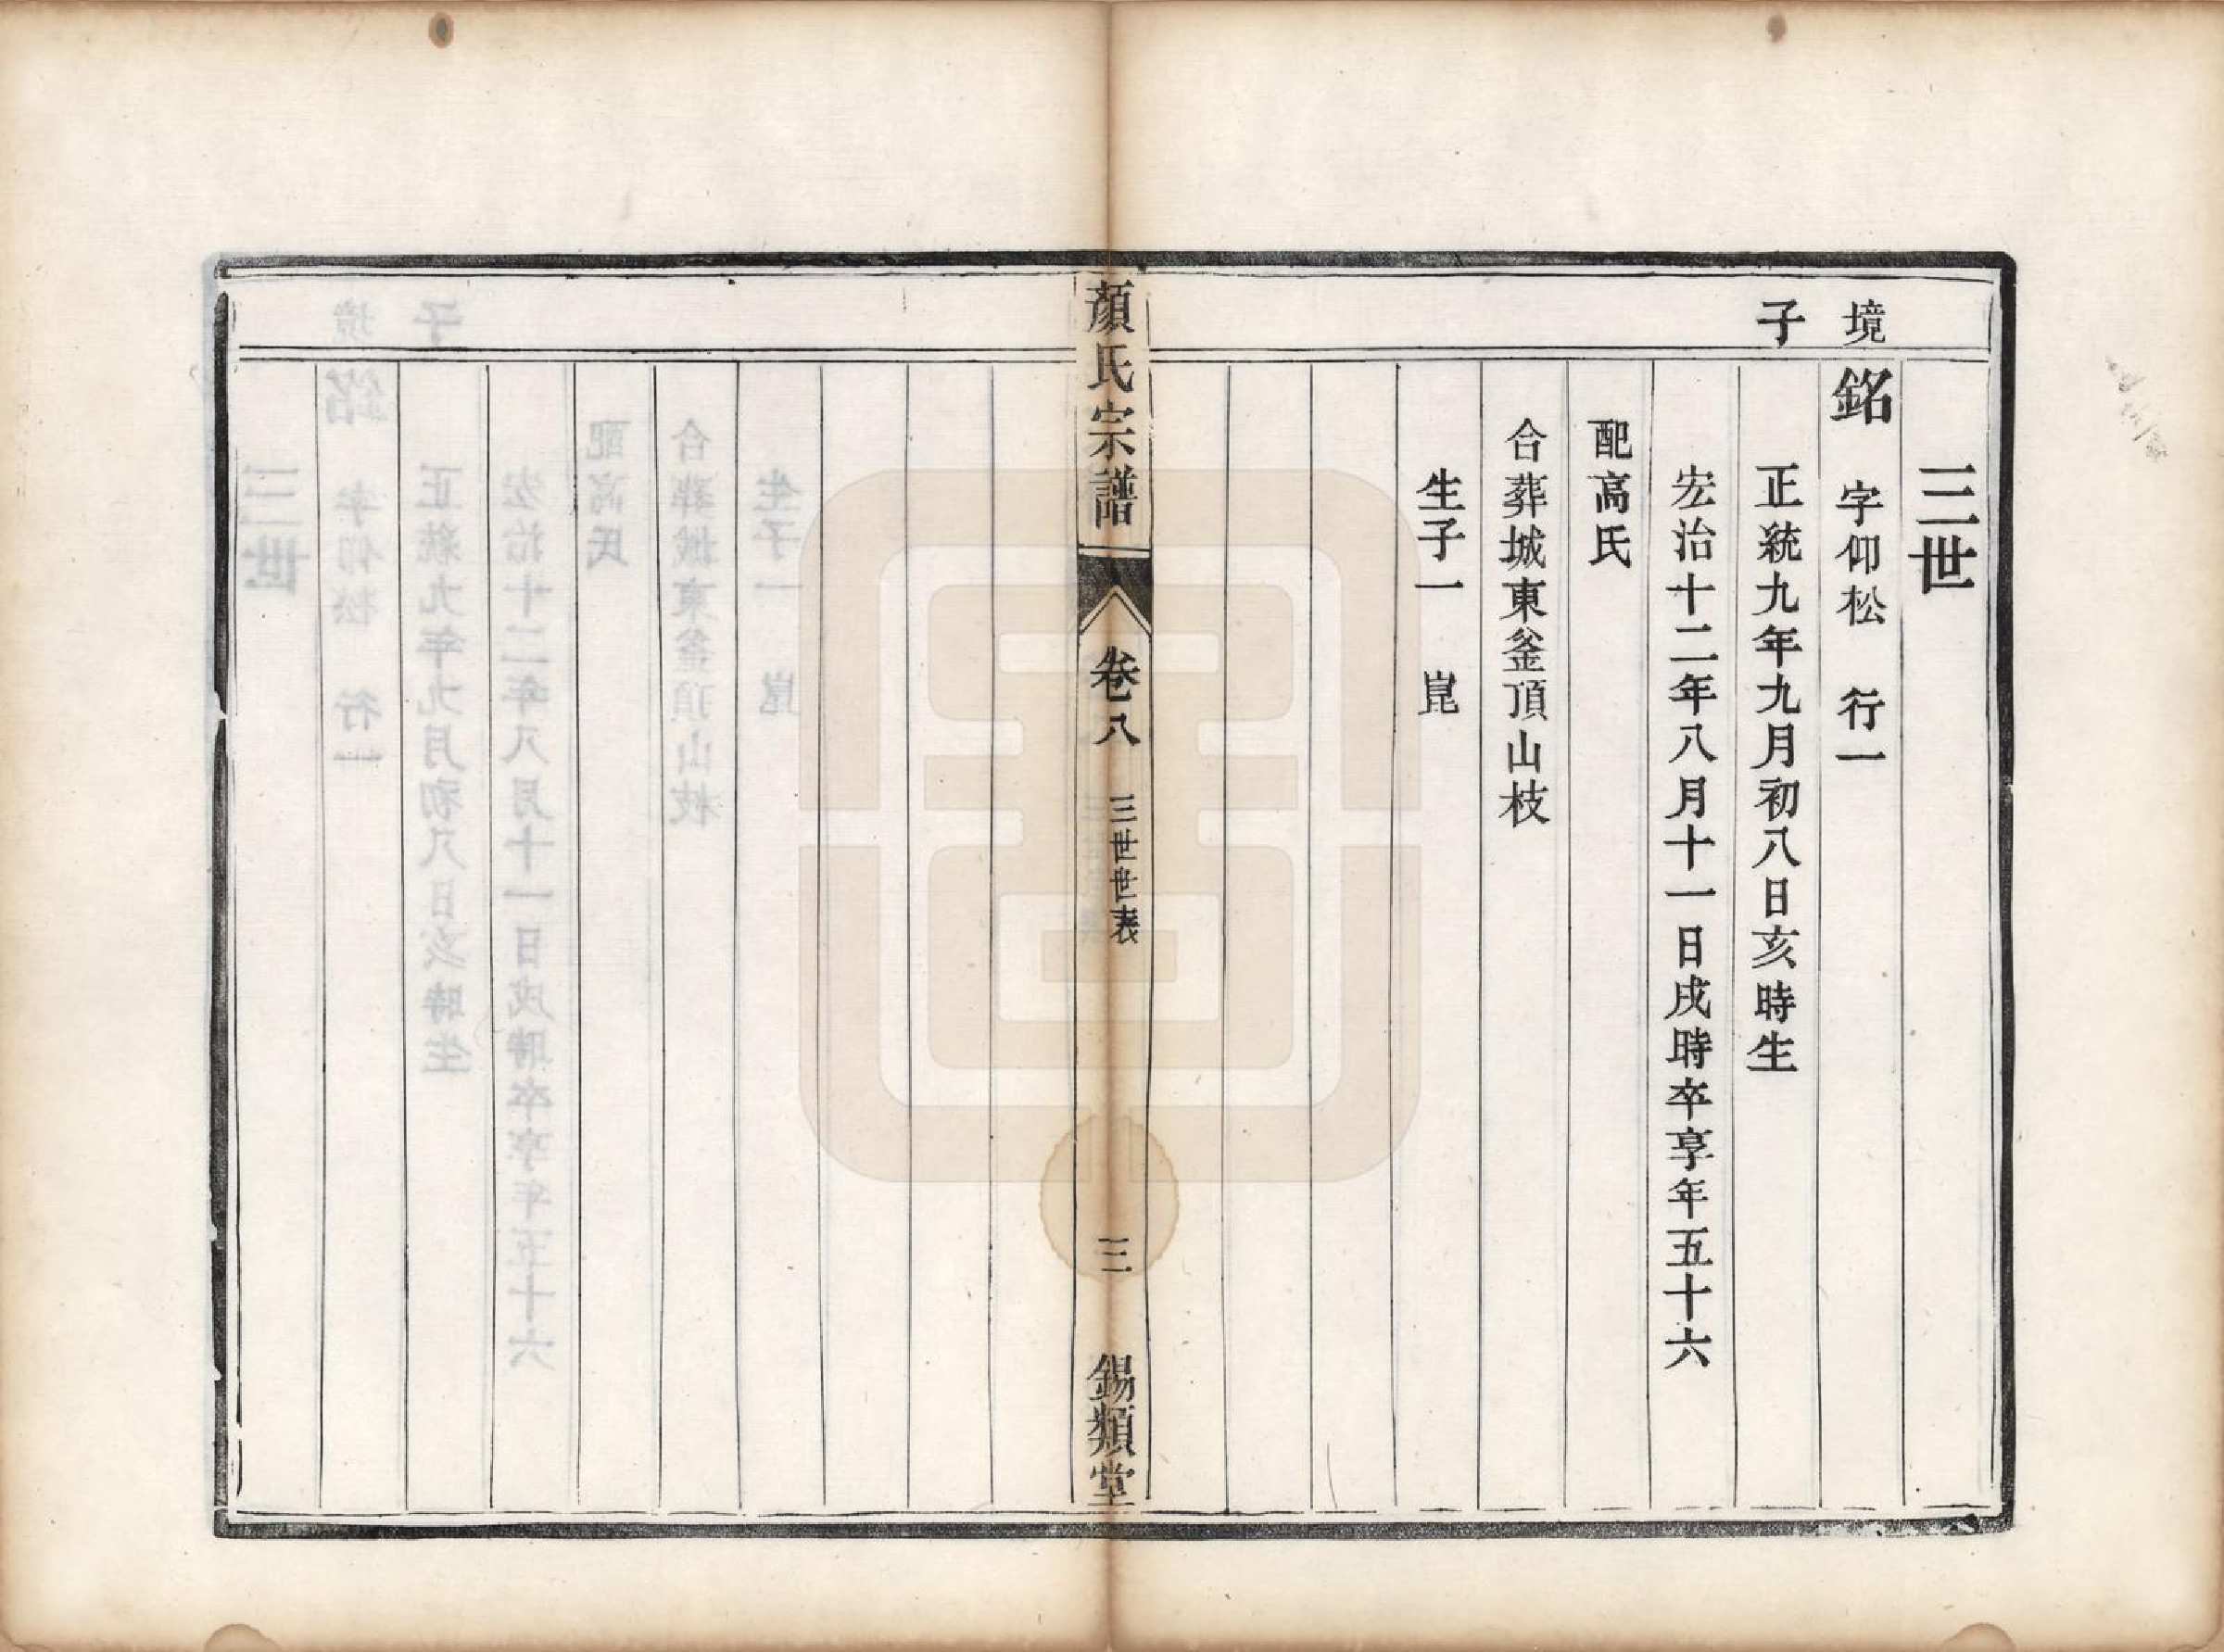 三世
境子
銘 字仰松 行一
正統九年九月初八日亥時生
宏治十二年八月十一日戌時卒享年五十六
配高氏
合葬城東釜頂山枝
生子一 崑
顏氏宗譜 卷八 三世世表 三 錫類堂